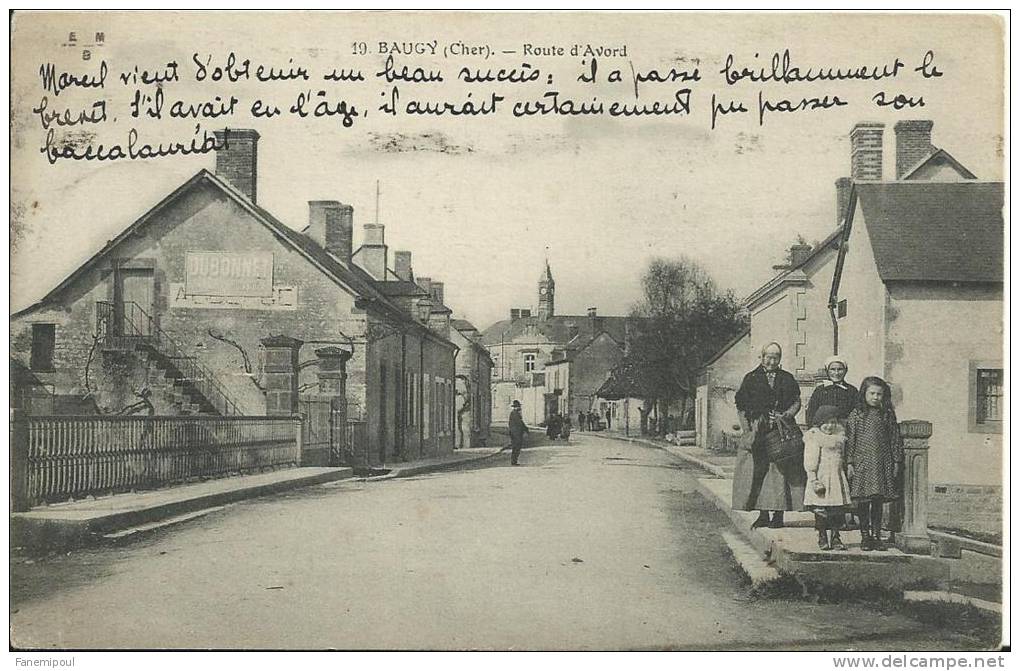 E M
B
19. BAUGY (Cher). — Route d'Avord
Marcel vient d'obtenir un beau succès: il a passé brillamment le
brevet. S'il avait eu l'âge, il aurait certainement pu passer son
baccalauréat
DUBONNET
Fanemipoul
delcampe.net